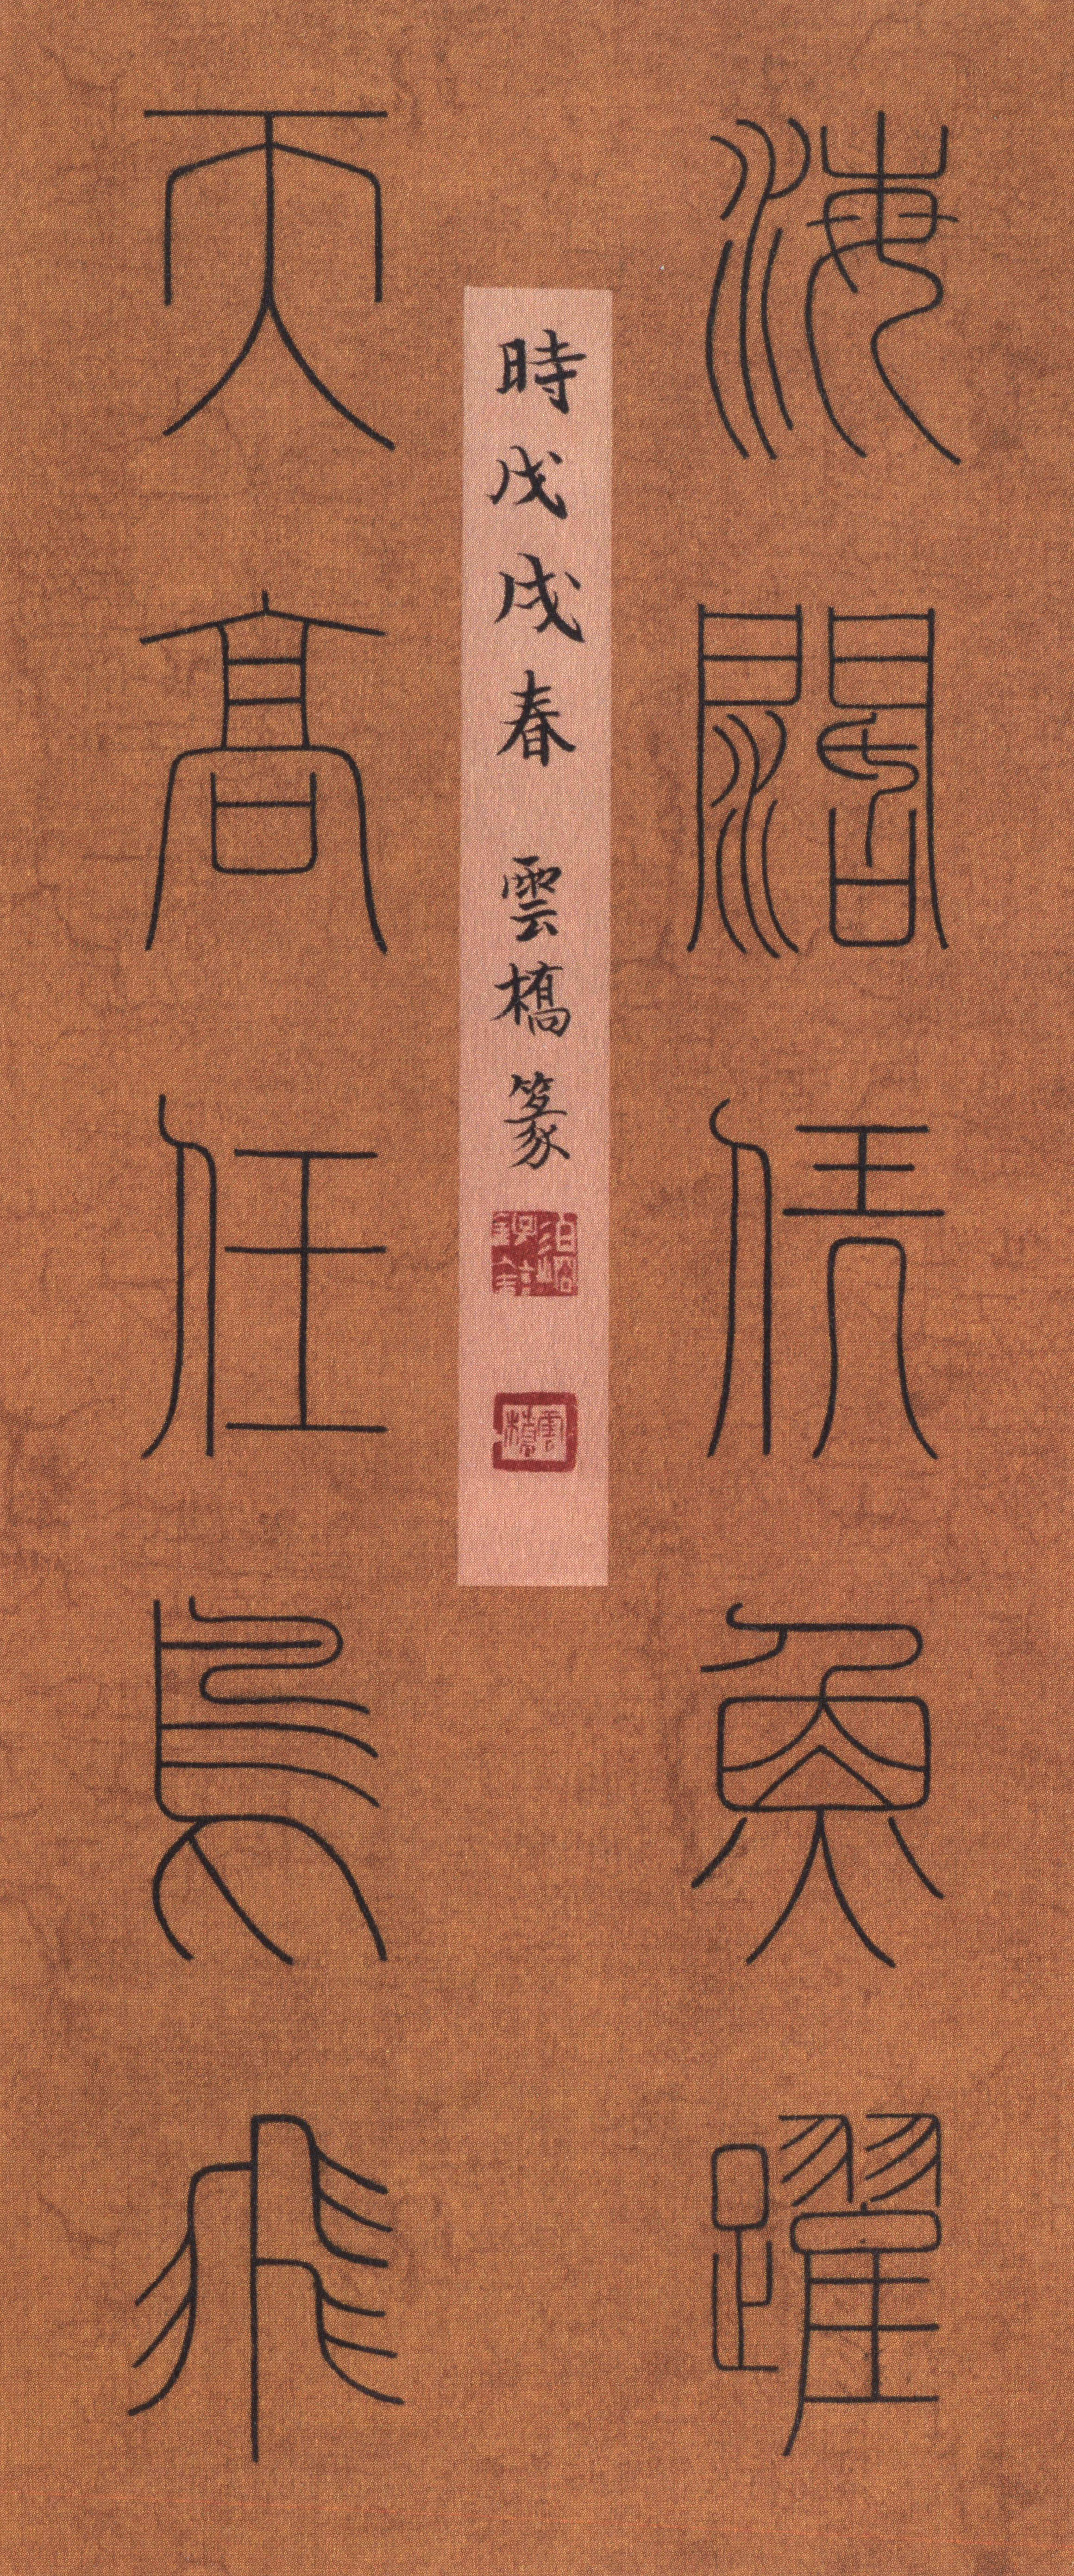 海闊凭魚躍
天高任鳥飛
時戊戌春 雲橋篆
雲橋